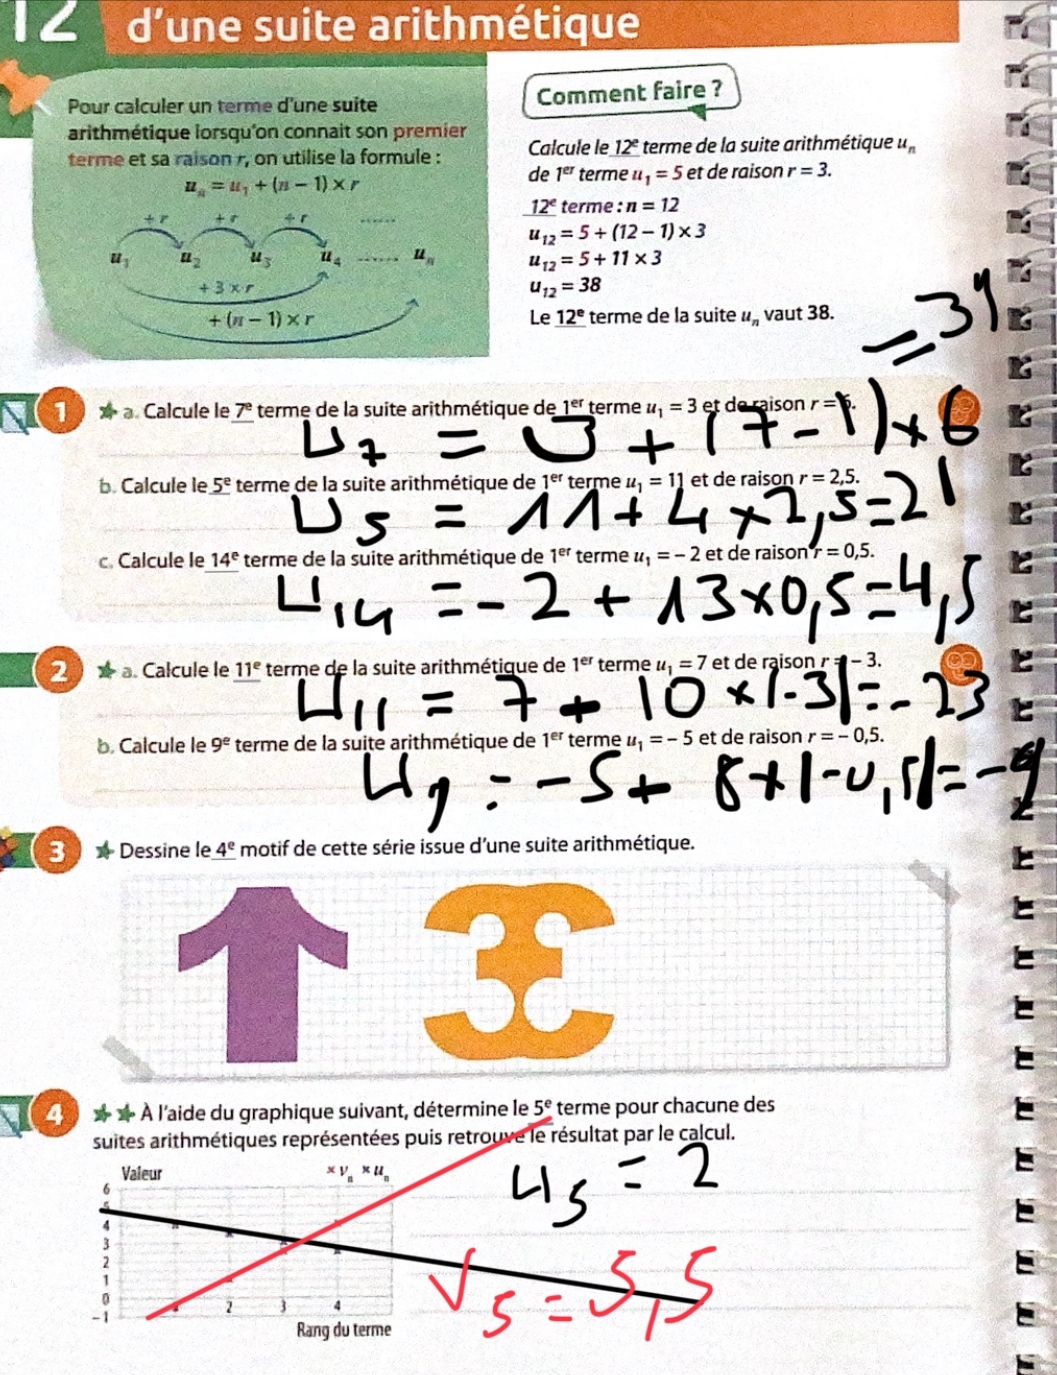 12 d'une suite arithmétique
Pour calculer un terme d'une suite
arithmétique lorsqu'on connait son premier
terme et sa raison r, on utilise la formule :
uₙ = u₁ + (n − 1) × r
+ r + r + r ......
u₁ u₂ u₃ u₄ ...... uₙ
+ 3 × r
+ (n − 1) × r
Comment faire ?
Calcule le 12e terme de la suite arithmétique uₙ
de 1er terme u₁ = 5 et de raison r = 3.
12e terme : n = 12
u₁₂ = 5 + (12 − 1) × 3
u₁₂ = 5 + 11 × 3
u₁₂ = 38
Le 12e terme de la suite uₙ vaut 38.
1 a. Calcule le 7e terme de la suite arithmétique de 1er terme u₁ = 3 et de raison r =
U₇ = 3 + (7-1)×6
b. Calcule le 5e terme de la suite arithmétique de 1er terme u₁ = 11 et de raison r = 2,5.
U₅ = 11+4×2,5=21
c. Calcule le 14e terme de la suite arithmétique de 1er terme u₁ = − 2 et de raison r = 0,5.
U₁₄ = -2 + 13×0,5=4,5
2 a. Calcule le 11e terme de la suite arithmétique de 1er terme u₁ = 7 et de raison r = − 3.
U₁₁ = 7 + 10×(-3)=-23
b. Calcule le 9e terme de la suite arithmétique de 1er terme u₁ = − 5 et de raison r = − 0,5.
U₉ = -5+ 8×(-0,5)=-9
3 Dessine le 4e motif de cette série issue d'une suite arithmétique.
4 À l'aide du graphique suivant, détermine le 5e terme pour chacune des
suites arithmétiques représentées puis retrouve le résultat par le calcul.
Valeur
× vₙ × uₙ
6
5
4
3
2
1
0
−1
2 3 4
Rang du terme
U₅ = 2
V₅ = 5,5